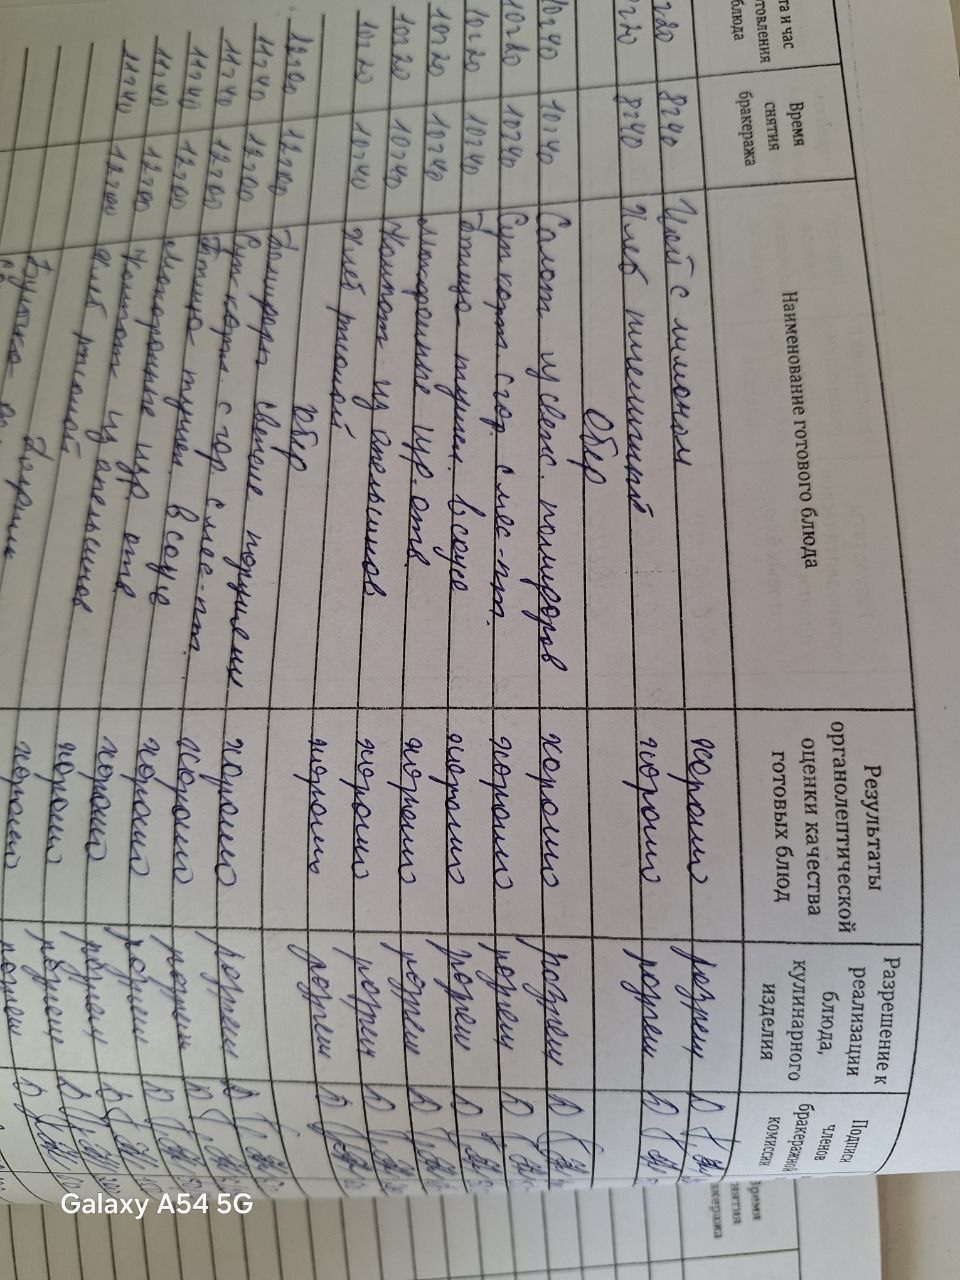 Дата и час изготовления блюда | Время снятия бракеража | Наименование готового блюда | Результаты органолептической оценки качества готовых блюд | Разрешение к реализации блюда, кулинарного изделия | Подписи членов бракеражной комиссии
8:20 8:40 Чай с лимоном хорошо разреш
8:20 8:40 Хлеб пшеничный хорошо разреш
Обед
10:40 10:40 Салат из свеж. помидоров хорошо разреш
10:20 10:40 Суп карт. с гор. с мяс-пт. хорошо разреш
10:20 10:40 Птица тушен. в соусе хорошо разреш
10:20 10:40 Макаронные изр. отв. хорошо разреш
10:20 10:40 Компот из апельсинов хорошо разреш
10:20 10:40 Хлеб ржаной хорошо разреш
Обед
12:00 12:00 Помидоры свежие порциями хорошо разреш
11:40 12:00 Суп карт. с гор. с мяс-пт. хорошо разреш
11:40 12:00 Птица тушен. в соусе хорошо разреш
11:40 12:00 Макаронные изр отв хорошо разреш
11:40 12:00 Компот из апельсинов хорошо разреш
11:40 12:00 Хлеб ржаной хорошо разреш
Полдник
Булочка
Время снятия бракеража
Galaxy A54 5G